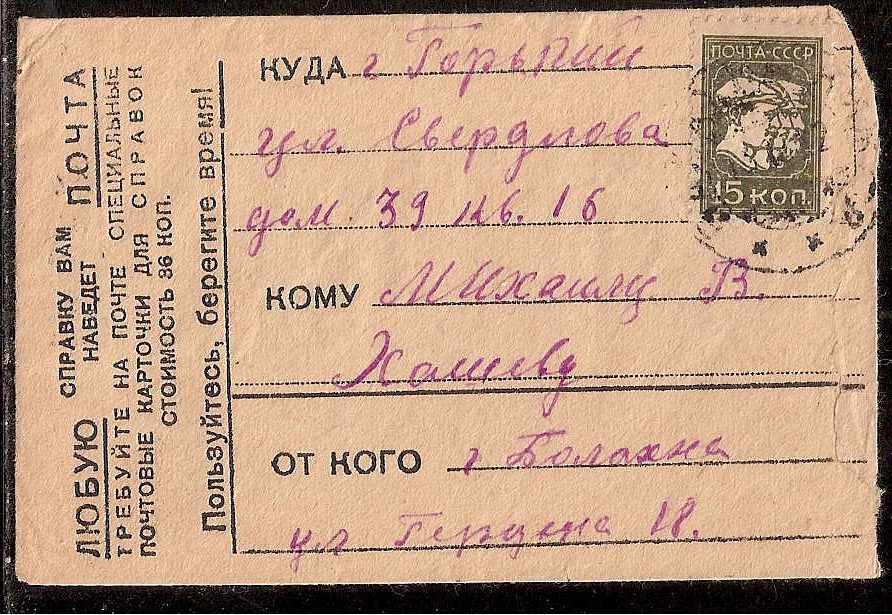 ЛЮБУЮ СПРАВКУ ВАМ НАВЕДЕТ ПОЧТА
ТРЕБУЙТЕ НА ПОЧТЕ СПЕЦИАЛЬНЫЕ
ПОЧТОВЫЕ КАРТОЧКИ ДЛЯ СПРАВОК
СТОИМОСТЬ 36 КОП.
Пользуйтесь, берегите время!
ПОЧТА-СССР
15 КОП.
КУДА г Горький
ул. Свердлова
дом. 39 кв. 16
КОМУ Михаилу В.
Хошеву
ОТ КОГО г Болахна
ул Герцена 18.